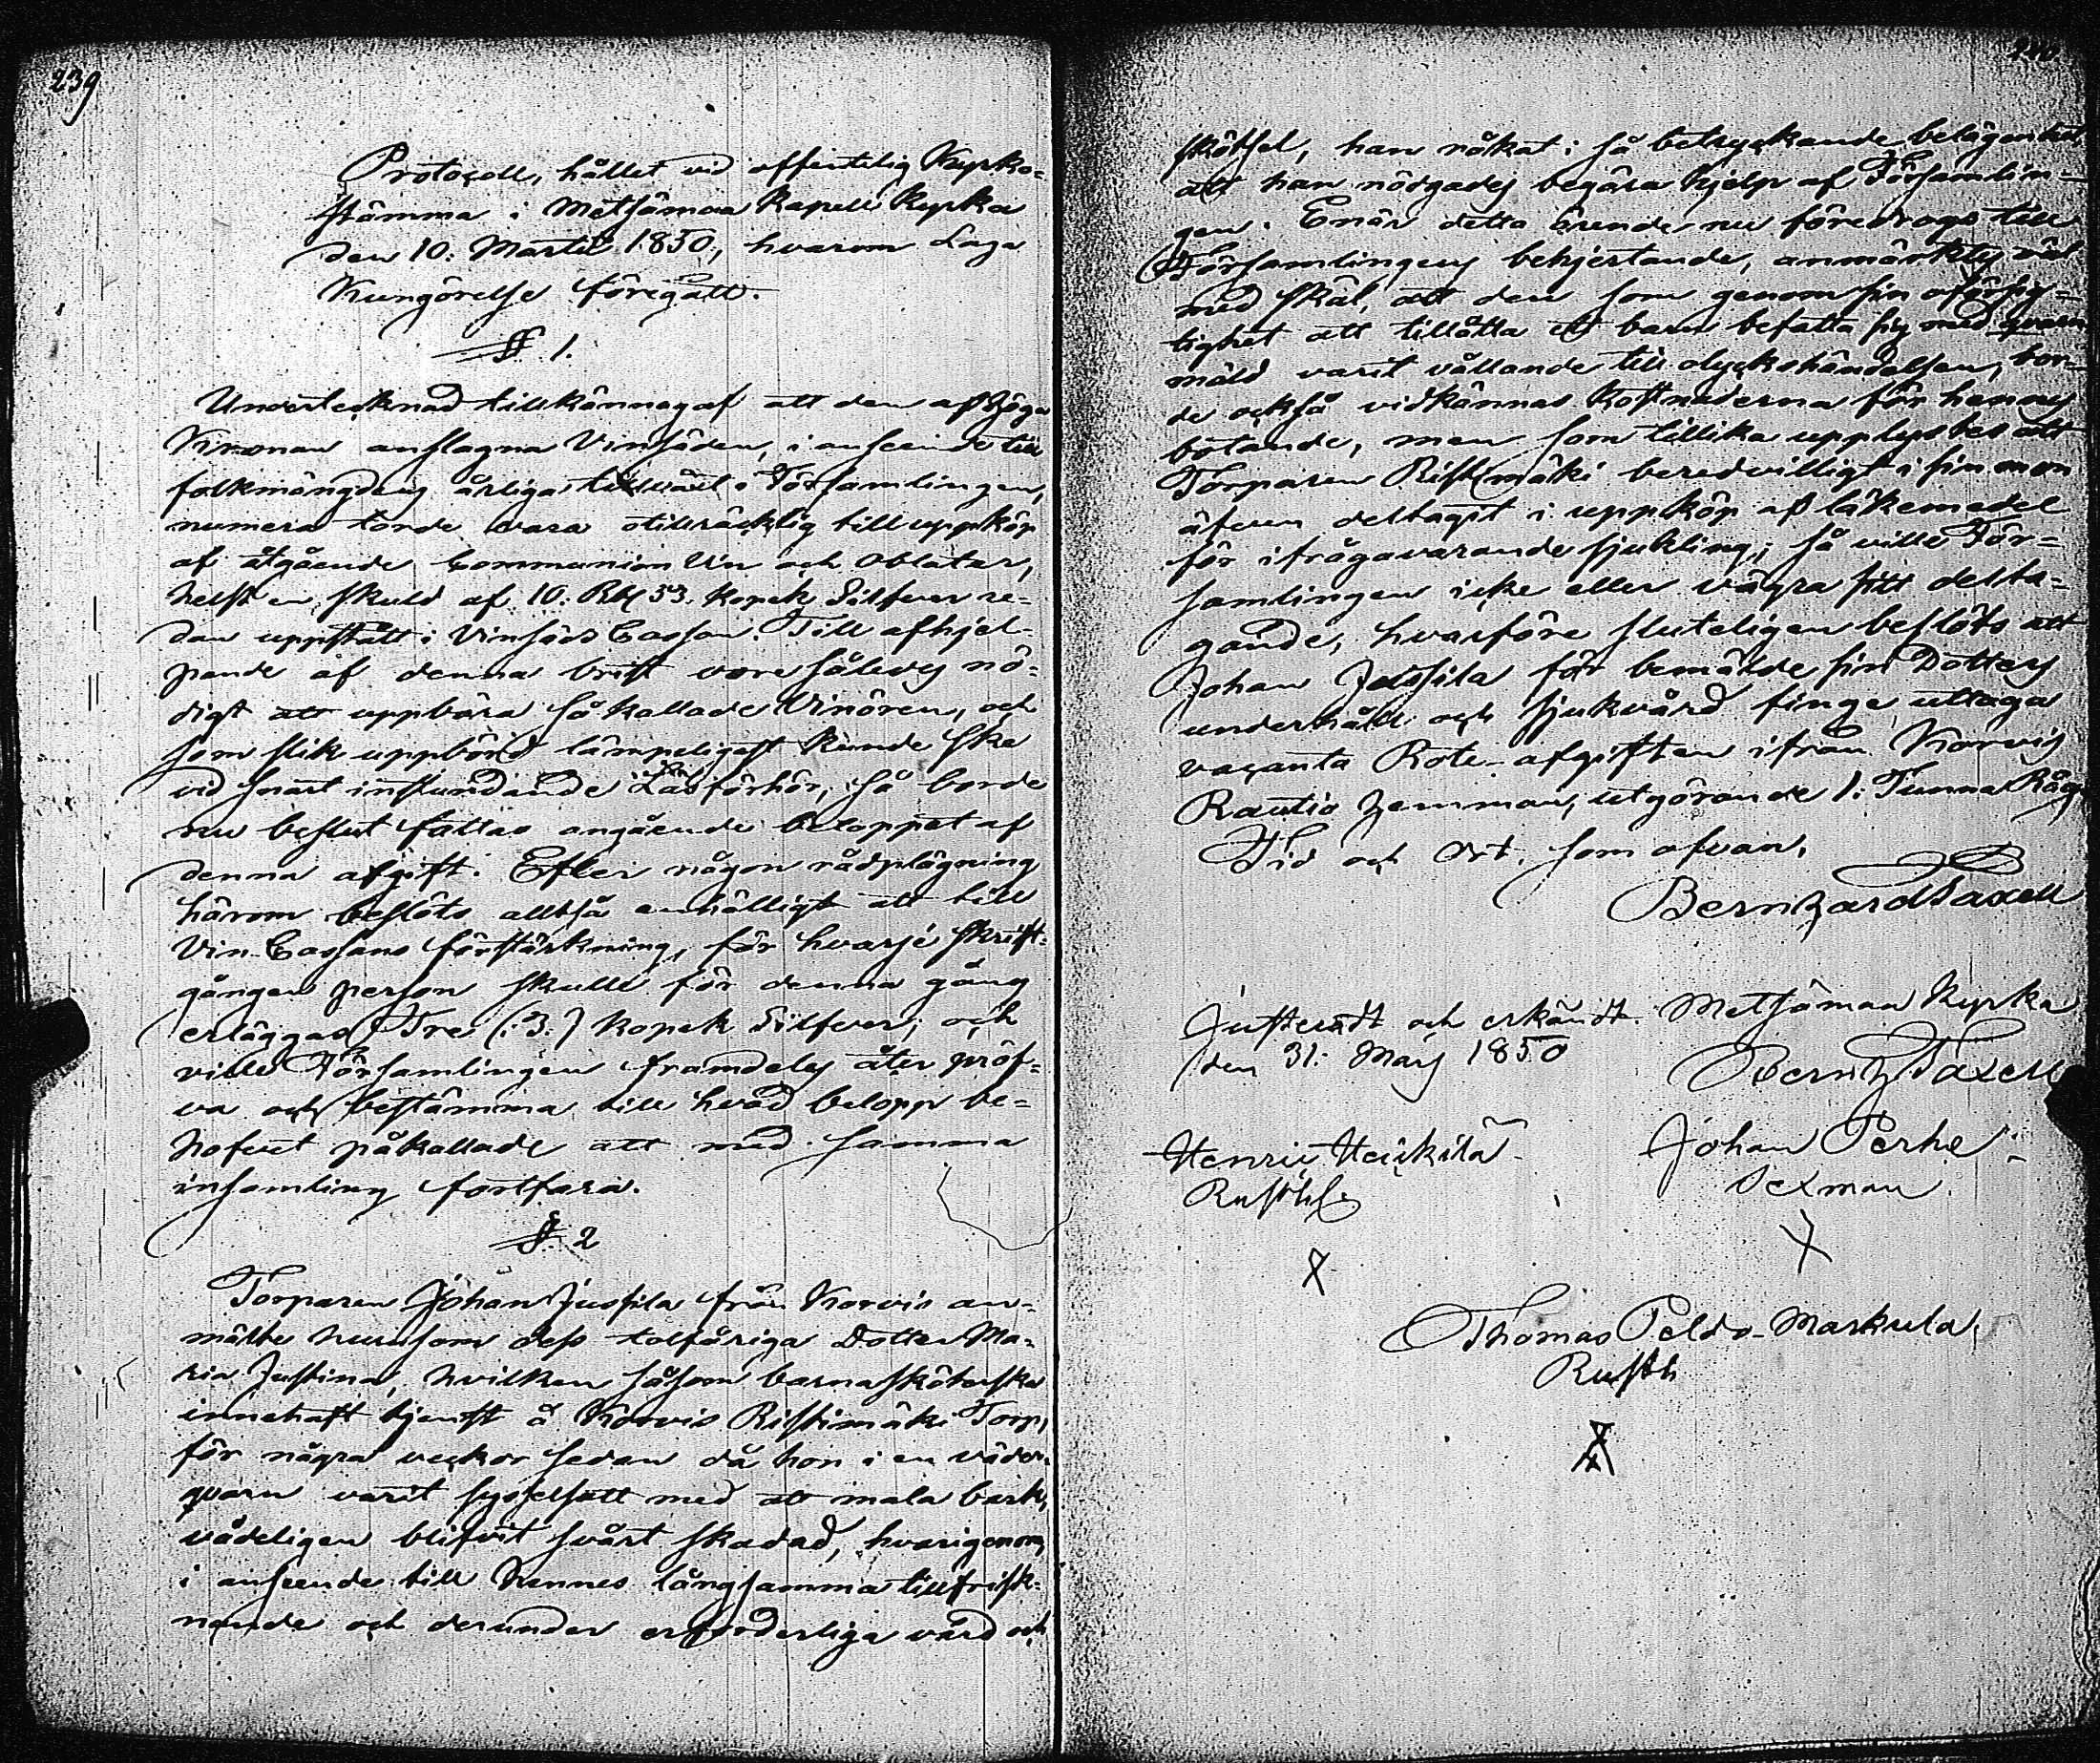 239
Protocoll, hållet vid offentelig Kyrko-
stämma i Metsämaa Kapell Kyrka
den 10. Martii 1850, hvarom Laga
Kungörelse föregått.
§ 1.
Undertecknad tillkännagaf att den af Höga
Kronan anslagna Vinsäden, i anseende till
folkmängdens årliga tillväxt i Församlingen,
numera torde vara otillräcklig till uppköp
af åtgående Communion Vin och Oblater,
helst en skuld af 10. Rbl 53. Kopek Silfver re-
dan uppstått i Vinsäds Cassan. Till afhjel-
pande af denna brist vore således nö-
digt att uppbära så kallade Vinören, och
som slik uppbörd lämpeligast kunde ske
vid snart instundande Läsförhör, så borde
nu beslut fattas angående beloppet af
denna afgift. Efter någon rådplägning
härom beslöts alltså enhälligt att till
Vin-Cassans förstärkning, för hvarje skrift-
gången person skulle för denna gång
erläggas Tre (:3.) Kopek Silfver, och
ville Församlingen framdeles åter pröf-
va och bestämma till hvad belopp be-
hofvet påkallade att med samma
insamling fortfara.
§ 2
Torparen Johan Jussila från Korvis an-
mälte hurusom dess tolfåriga Dotter Ma-
ria Justina, hvilken såsom barnasköterska
innehaft tjenst å Korvis Ristimäki Torp,
för några veckor sedan då hon i en väder-
qvarn varit sysselsatt med att mala bark,
vådeligen blifvit svårt skadad, hvarigenom,
i anseende till hennes långsamma tillfrisk-
nande och derunder erforderliga vård och
240
skötsel, han råkat i så betryckande belägenhet
att han nödgades begära hjelp af Församlin-
gen. Enär detta ärende nu föredrogs till
Församlingens behjertande, anmärktes väl
med skäl, att den som genom sin oförsig-
tighet att tillåtta ett barn befatta sig med qvarn
mäld varit vållande till olyckshändelsen, bor-
de också vidkännas Kostnaderna för hennes
botande, men som tillika upplystes att
Torparen Ristimäki beredvilligt i sin mon
äfven deltagit i uppköp af läkemedel
för ifrågavarande sjukling; så ville För-
samlingen icke eller vägra sitt delta-
gande, hvarföre sluteligen beslöts att
Johan Jussila för bemälde sin Dotters
underhåll och sjukvård finge uttaga
vacanta Rote-afgiften ifrån Korvis
Rautio hemman, utgörande 1. Tunna Råg.
Tid och Ort, som ofvan.
Bernhard Taxell
Justeradt och erkändt. Metsämaa Kyrka
den 31. Mars 1850
Bernh Taxell
Henric Heickilä
Rusth
Johan Perhe
Sexman
X
X
Thomas Peldo-Markula
Rusth